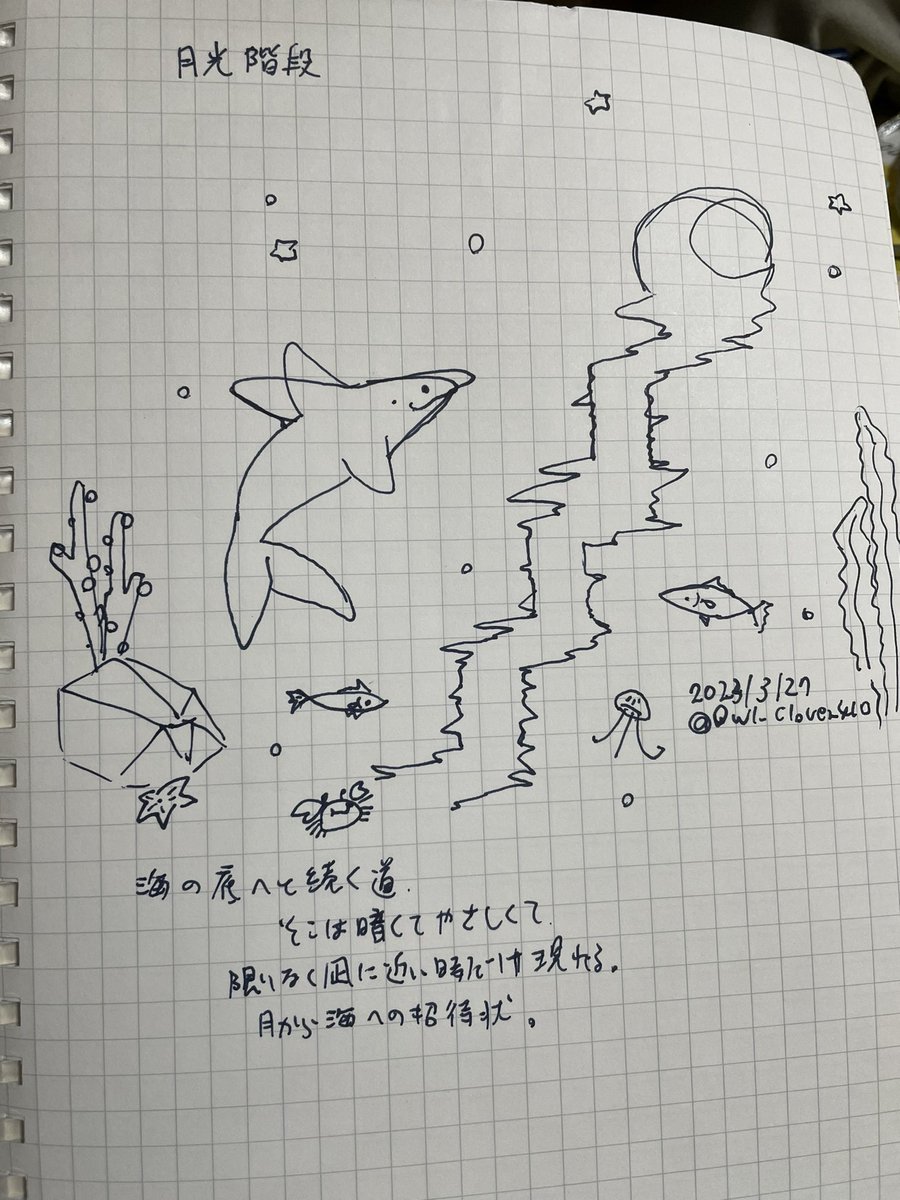 月光階段
2023/3/27
海の底へと続く道.
そこは暗くてやさしくて.
限りなく凪に近い時だけ現れる。
月から海への招待状。